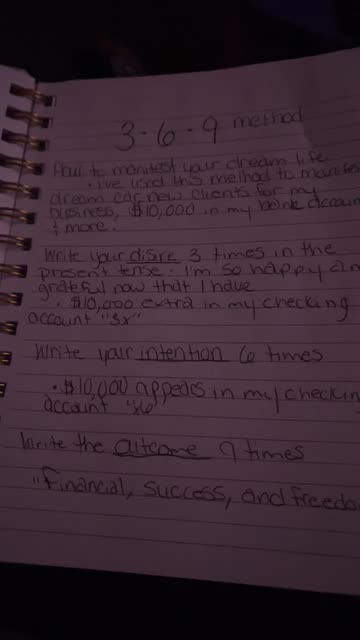 3·6·9 method
How to manifest your dream life
• I've used this method to manifes
dream car, new clients for my
business, $10,000 in my bank accoun
& more.
Write your disire 3 times in the
present tense. I'm so happy an
grateful now that I have
• $10,000 extra in my checking
account "3x"
Write your intention 6 times
• $10,000 appears in my checkin
account "x6
Write the outcome 9 times
"Financial, success, and freedo